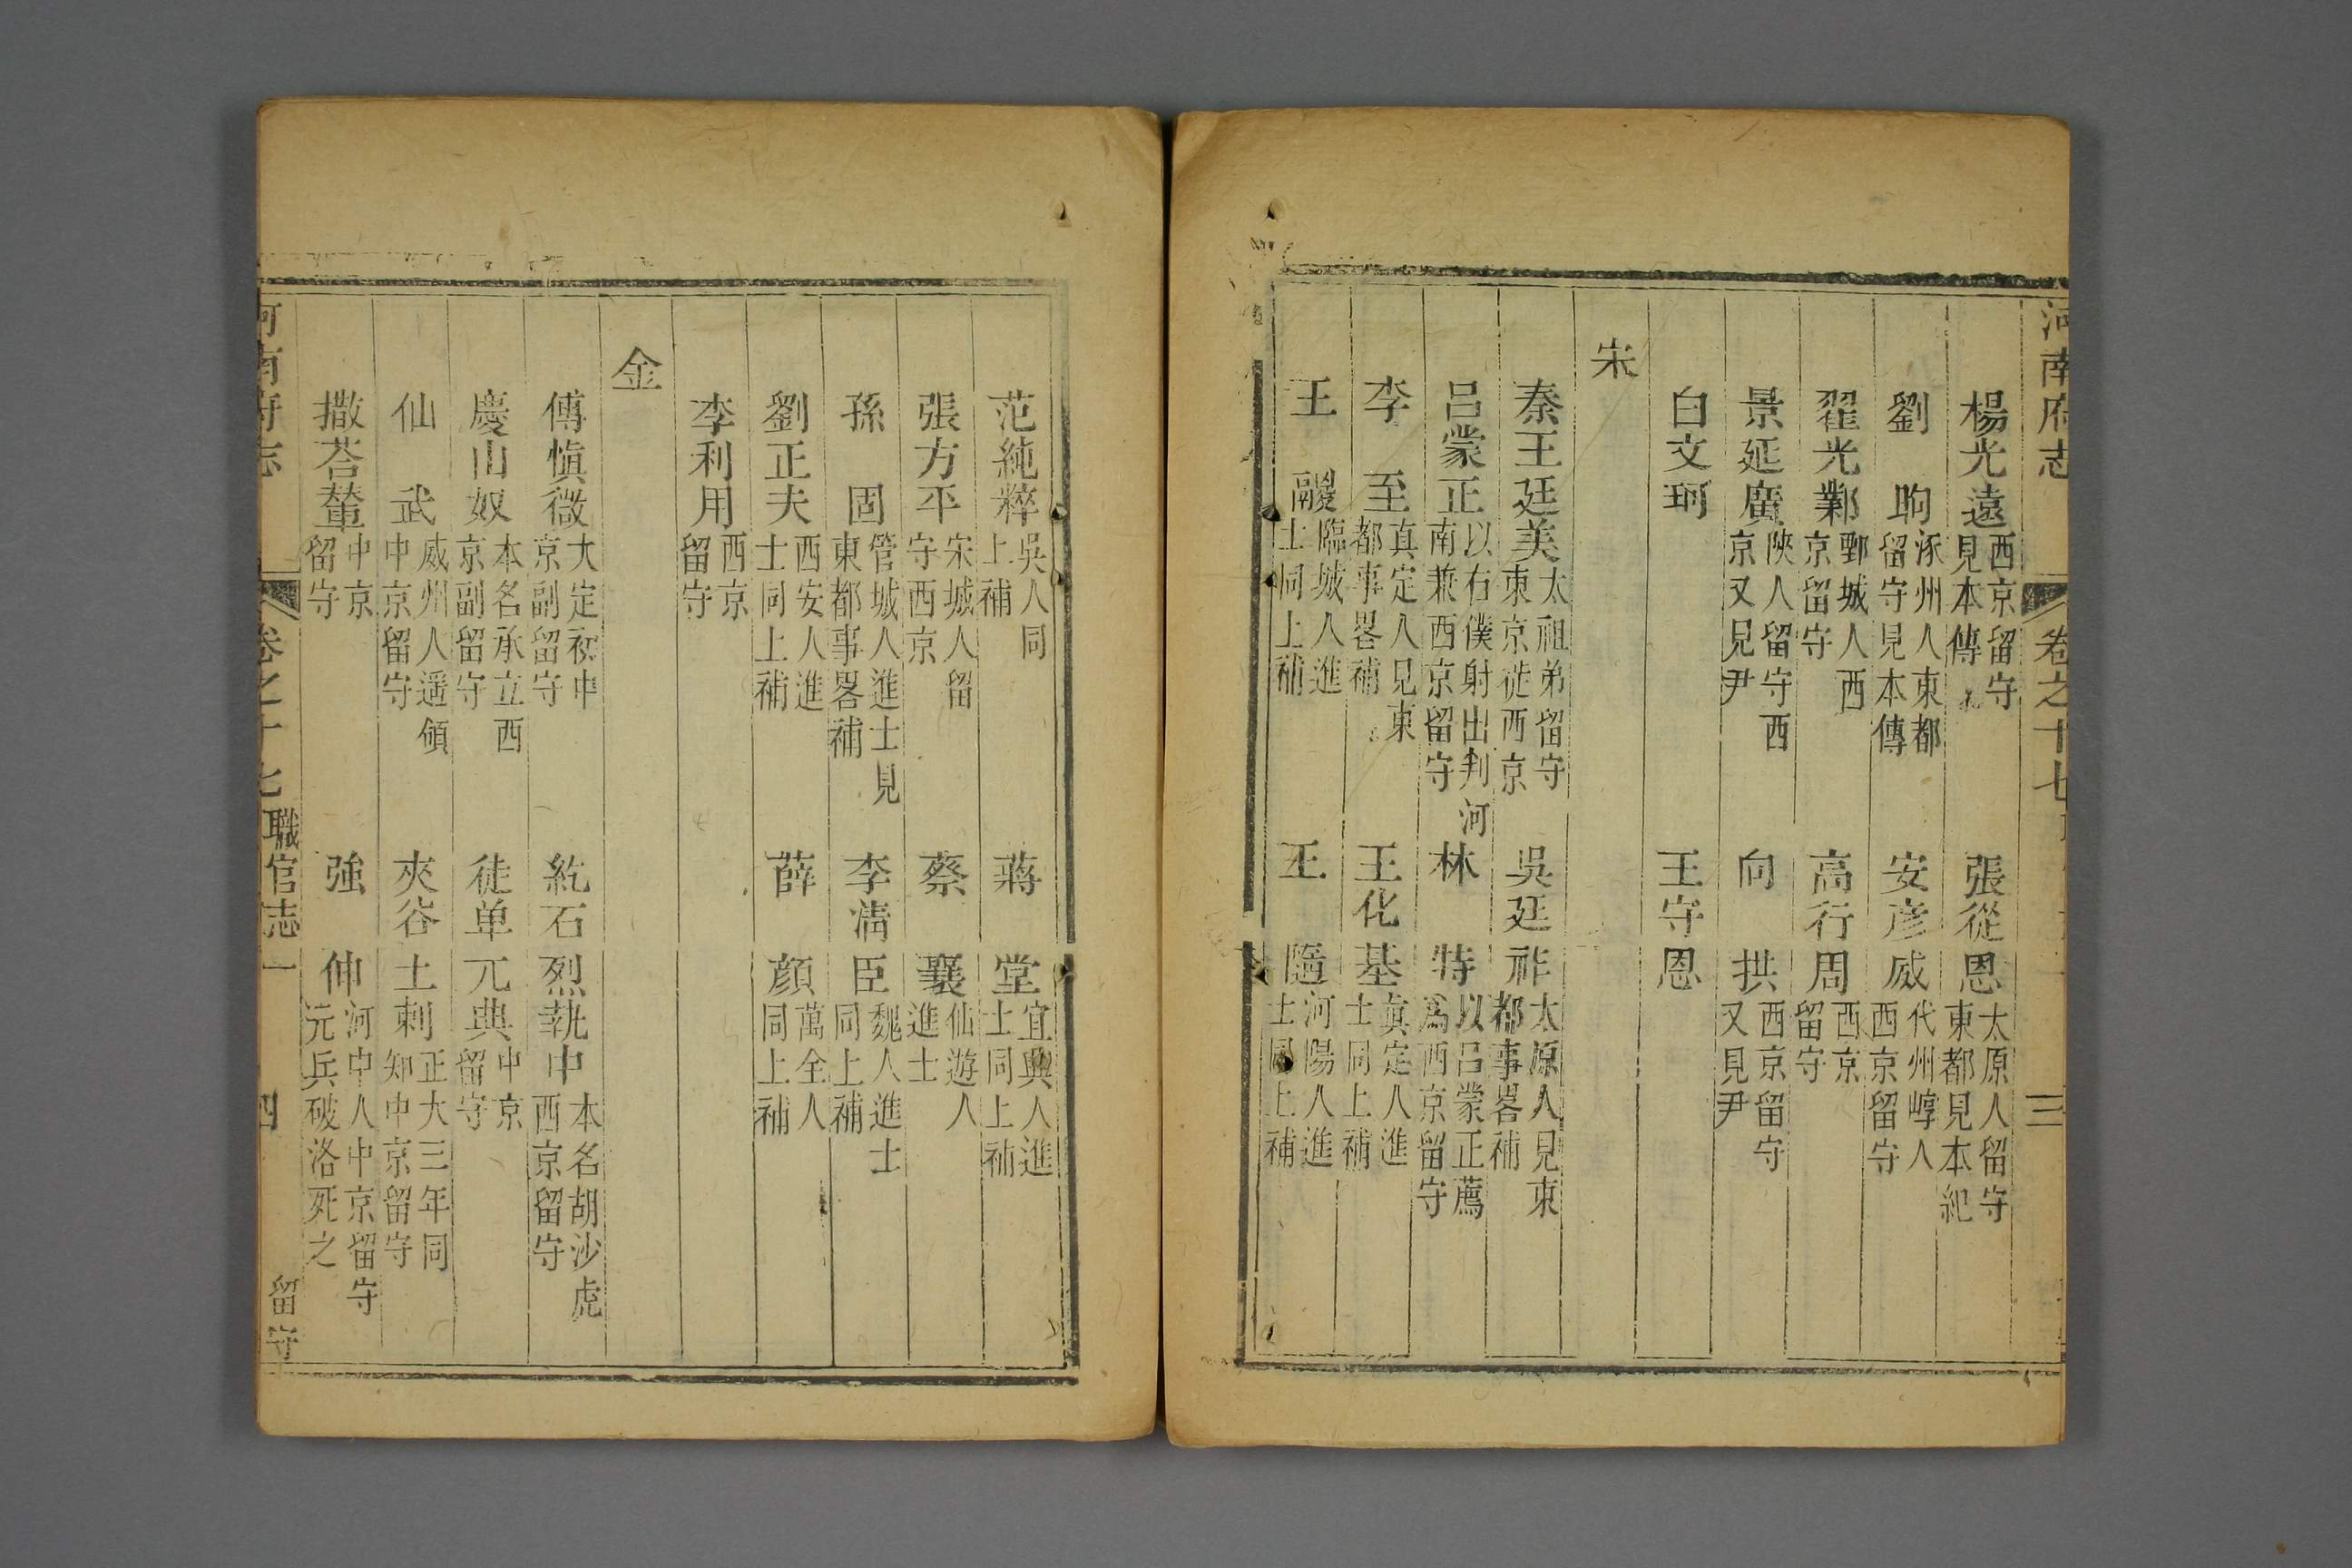 河南府志 卷之十七 三
楊光遠 西京留守見本傳 張從恩 太原人留守東都見本紀
劉昫 涿州人東都留守見本傳 安彥威 代州崞人西京留守
翟光鄴 鄄城人西京留守 高行周 西京留守
景延廣 陝人留守西京又見尹 向拱 西京留守又見尹
白文珂 王守恩
宋
秦王廷美 太祖弟留守東京徙西京 吳廷祚 太原人見東都事畧補
呂蒙正 以右僕射出判河南兼西京留守 林特 以呂蒙正薦爲西京留守
李至 真定人見東都事畧補 王化基 真定人進士同上補
王 臨城人進士同上補 王隨 河陽人進士同上補
范純粹 吳人同上補 蔣堂 宜興人進士同上補
張方平 宋城人留守西京 蔡襄 仙遊人進士
孫固 管城人進士見東都事畧補 李清臣 魏人進士同上補
劉正夫 西安人進士同上補 薛顏 萬全人同上補
李利用 西京留守
金
傅慎微 大定初中京副留守 紇石烈執中 本名胡沙虎西京留守
慶山奴 本名承立西京副留守 徒单兀典 中京留守
仙武 威州人遥領中京留守 夾谷土剌 正大三年同知中京留守
撒荅輦 中京留守 強伸 河中人中京留守元兵破洛死之
河南府志 卷之十七 職官志一 四 留守